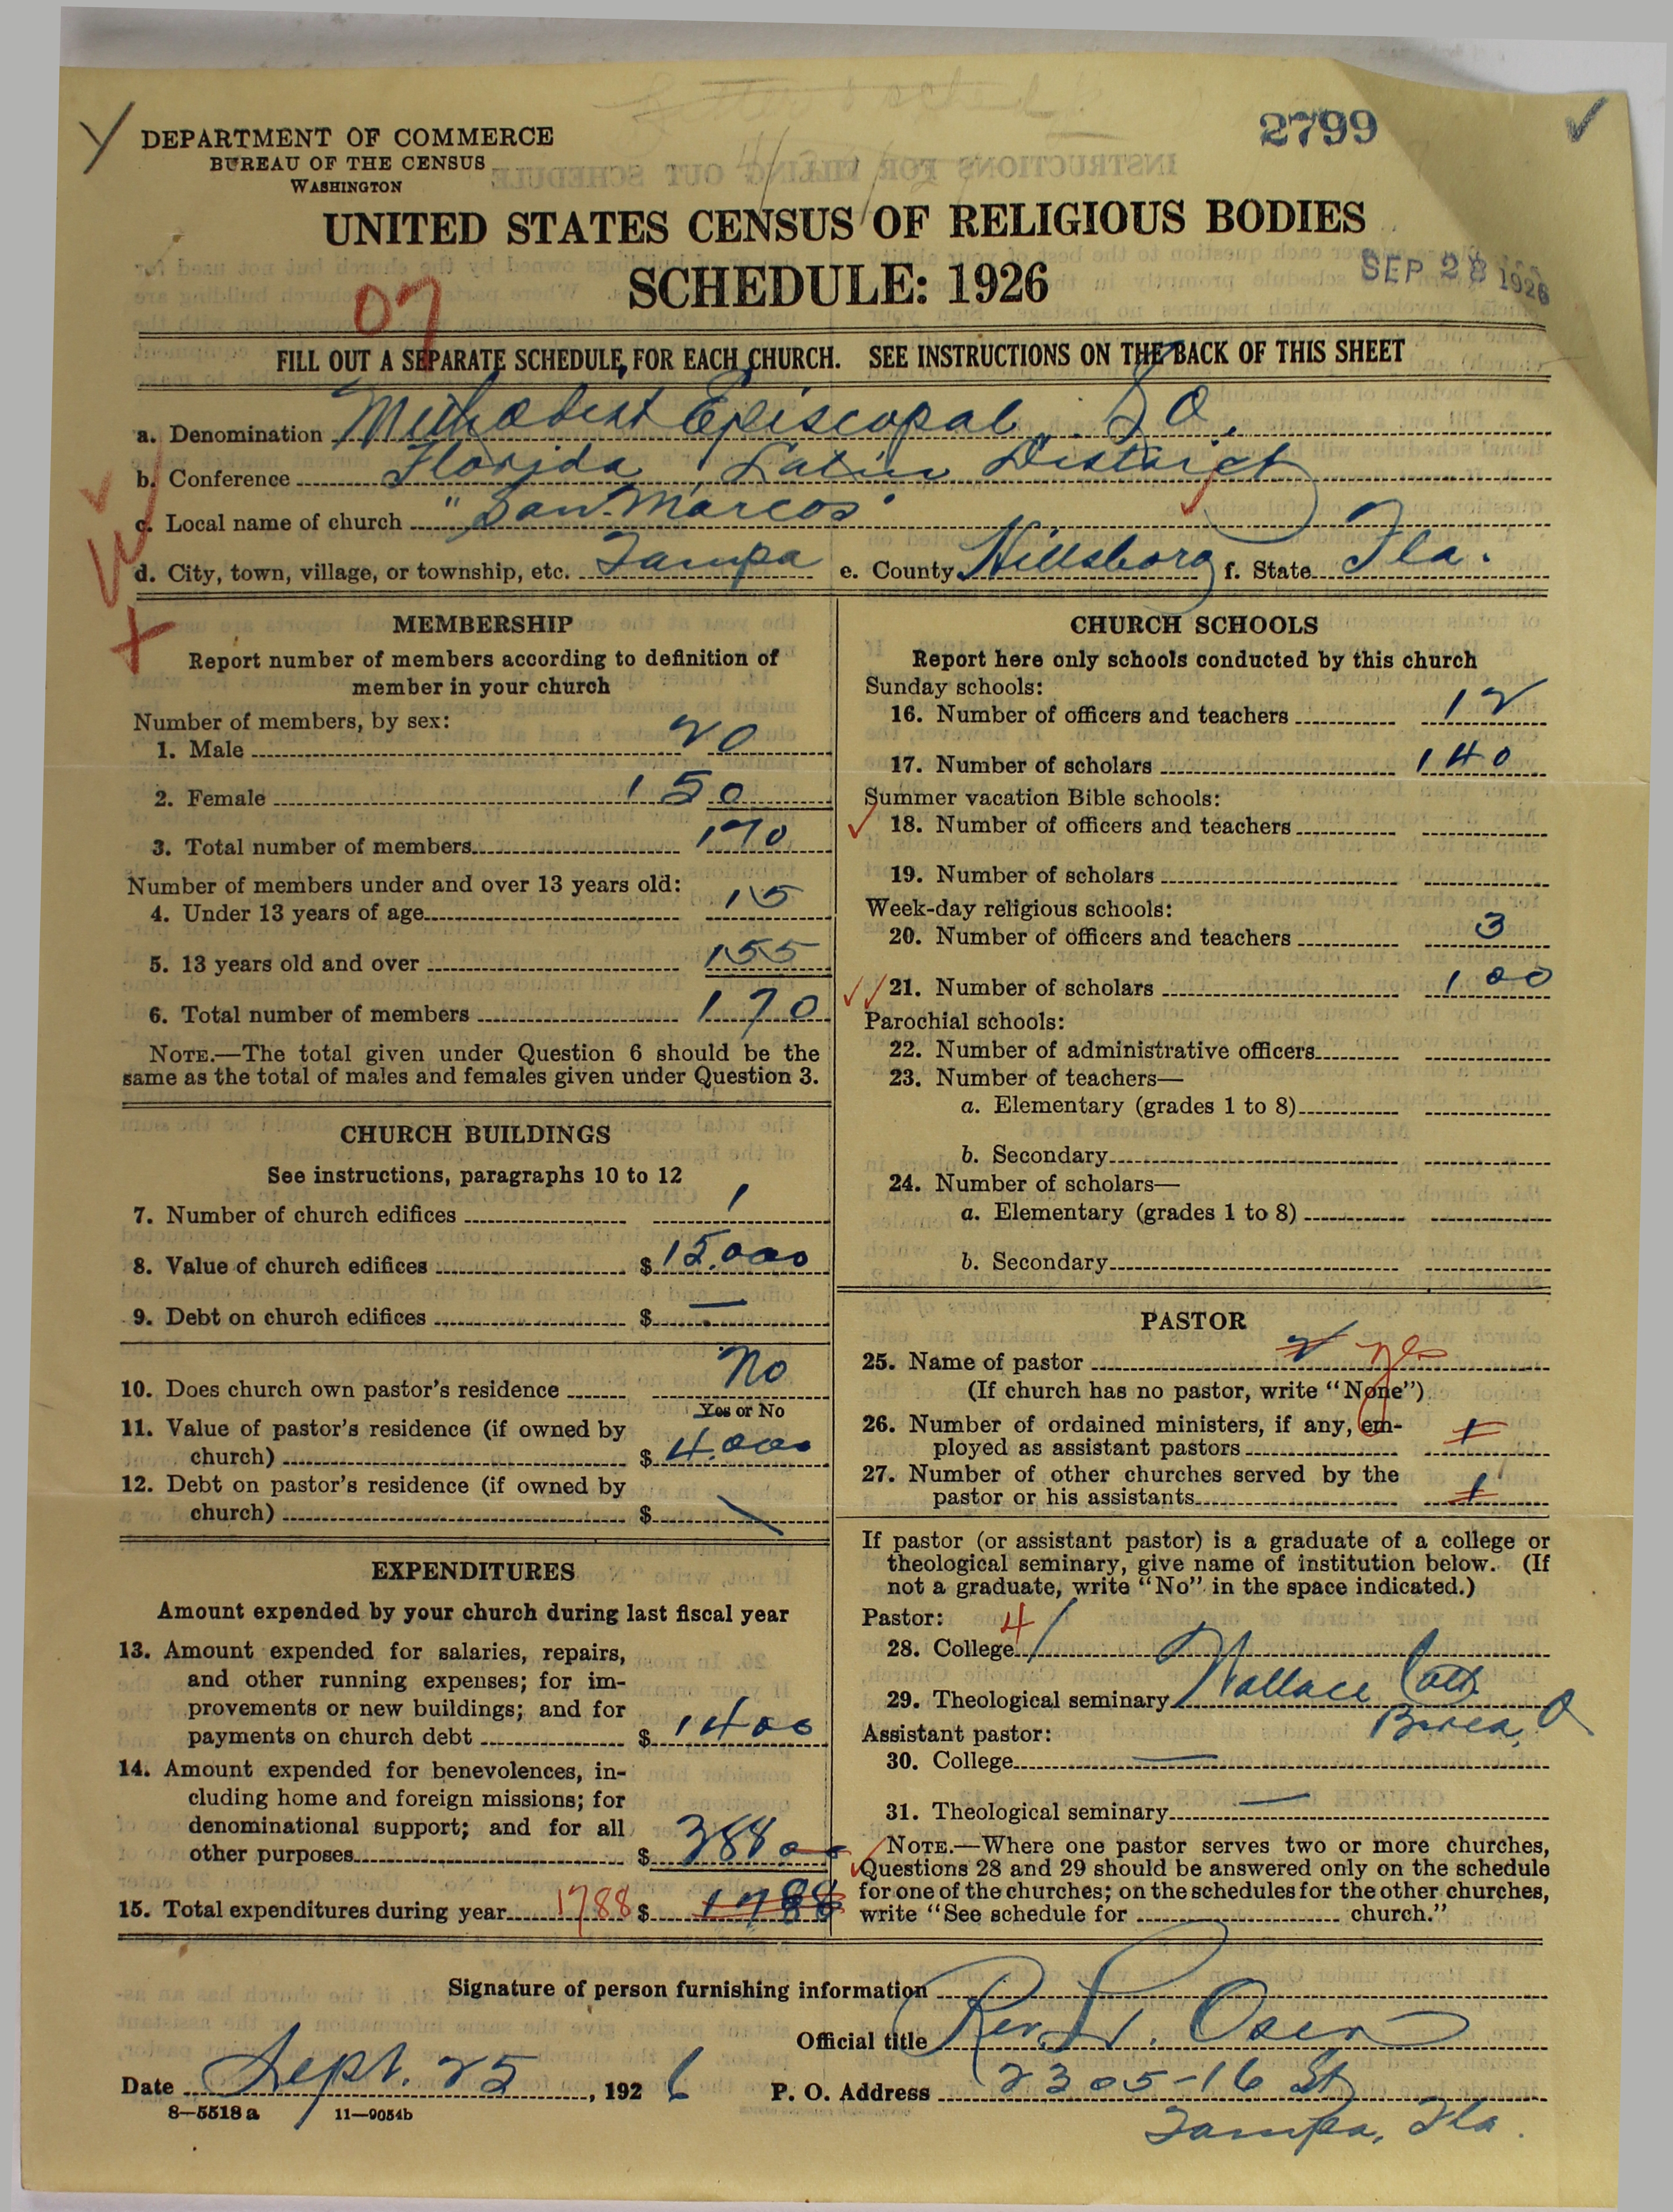 2799
DEPARTMENT OF COMMERCE
BUREAU OF THE CENSUS
WASHINGTON
UNITED STATES CENSUS OF RELIGIOUS BODIES
SCHEDULE: 1926
SEP 28 1926
07
FILL OUT A SEPARATE SCHEDULE FOR EACH CHURCH. SEE INSTRUCTIONS ON THE BACK OF THIS SHEET
a. Denomination Methodist Episcopal, So.
b. Conference Florida, Latin District
c. Local name of church "San Marcos"
d. City, town, village, or township, etc. Tampa e. County Hillsboro f. State Fla.
MEMBERSHIP
Report number of members according to definition of
member in your church
Number of members, by sex:
1. Male 20
2. Female 150
3. Total number of members 170
Number of members under and over 13 years old:
4. Under 13 years of age 15
5. 13 years old and over 155
6. Total number of members 170
NOTE.—The total given under Question 6 should be the
same as the total of males and females given under Question 3.
CHURCH BUILDINGS
See instructions, paragraphs 10 to 12
7. Number of church edifices 1
8. Value of church edifices $15.000
9. Debt on church edifices $ —
10. Does church own pastor's residence No
Yes or No
11. Value of pastor's residence (if owned by
church) $ 4.000
12. Debt on pastor's residence (if owned by
church) $
EXPENDITURES
Amount expended by your church during last fiscal year
13. Amount expended for salaries, repairs,
and other running expenses; for im-
provements or new buildings; and for
payments on church debt $ 1400
14. Amount expended for benevolences, in-
cluding home and foreign missions; for
denominational support; and for all
other purposes $ 388 00
15. Total expenditures during year 1788 $ 1788
CHURCH SCHOOLS
Report here only schools conducted by this church
Sunday schools:
16. Number of officers and teachers 12
17. Number of scholars 140
Summer vacation Bible schools:
18. Number of officers and teachers
19. Number of scholars
Week-day religious schools:
20. Number of officers and teachers 3
21. Number of scholars 100
Parochial schools:
22. Number of administrative officers
23. Number of teachers—
a. Elementary (grades 1 to 8)
b. Secondary
24. Number of scholars—
a. Elementary (grades 1 to 8)
b. Secondary
PASTOR
25. Name of pastor 2 yes
(If church has no pastor, write "None")
26. Number of ordained ministers, if any, em-
ployed as assistant pastors 1
27. Number of other churches served by the
pastor or his assistants 1
If pastor (or assistant pastor) is a graduate of a college or
theological seminary, give name of institution below. (If
not a graduate, write "No" in the space indicated.)
Pastor: 4
28. College /
29. Theological seminary Wallace Coll.
Berea, O
Assistant pastor:
30. College —
31. Theological seminary —
NOTE.—Where one pastor serves two or more churches,
Questions 28 and 29 should be answered only on the schedule
for one of the churches; on the schedules for the other churches,
write "See schedule for church."
Signature of person furnishing information
Official title Rev. Oser
Date Sept. 25, 1926 P. O. Address 2305-16 St
8—5518 a 11—9054b
Tampa, Fla.